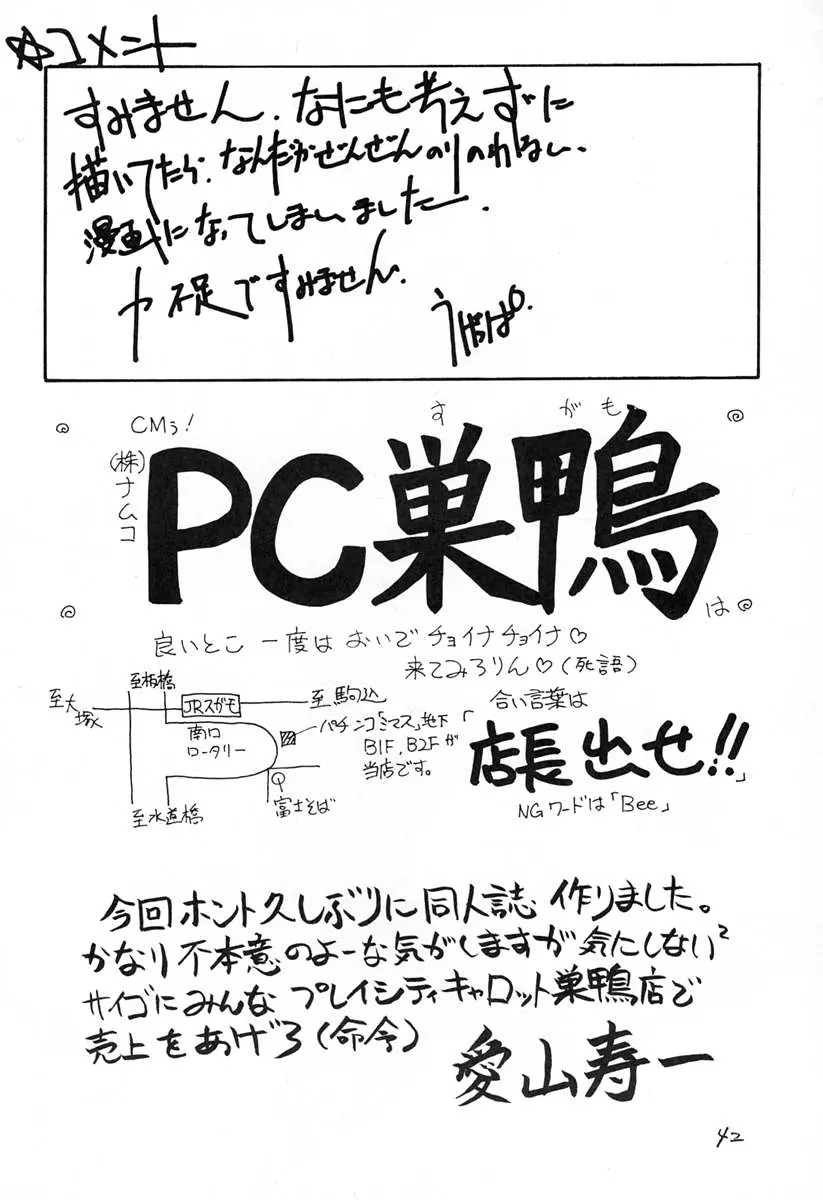 ☆コメント
すみません. なにも考えずに
描いてたら. なんだかぜんぜんのりのわるい.
漫画になってしまいました.
力不足ですみません.
CMぅ!
すがも
(株)ナムコ
PC巣鴨
は
良いとこ 一度は おいで チョイナチョイナ♡
来てみろりん♡(死語)
至大塚
至板橋
JRスガモ
至駒込
南口
ロータリー
パチンコ「ミマス」地下
B1F, B2Fが
当店です。
至水道橋
富士そば
合い言葉は
「店長出せ!!」
NGワードは「Bee」
今回ホント久しぶりに同人誌 作りました。
かなり不本意のよーな気がしますが気にしない²
サイゴにみんな プレイシティキャロット巣鴨店で
売上をあげろ(命令)
愛山寿一
42